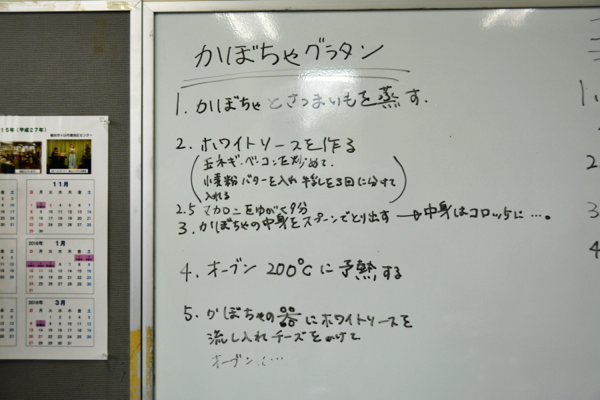 15年(平成27年)
11月
1月
3月
かぼちゃグラタン
1. かぼちゃとさつまいもを蒸す.
2. ホワイトソースを作る
(玉ネギ・ベーコンを炒めて.
小麦粉バターを入れ牛乳を3回に分けて
入れる)
2.5 マカロニをゆがく9分
3. かぼちゃの中身をスプーンでとり出す → 中身はコロッケに….
4. オーブン 200°Cに予熱する
5. かぼちゃの器にホワイトソースを
流し入れチーズをかけて
オーブンに…
1.
2
3
4